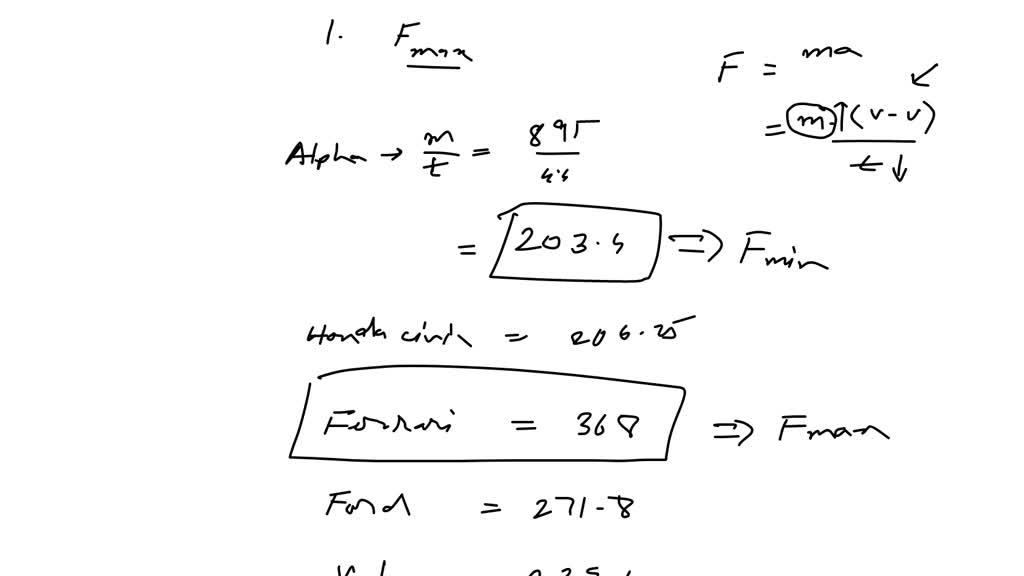 1. Fmax
F = ma
= m ↑ (v - v) / t ↓
Alpha → m/t = 895 / 4.4
= 203.4 ⇒ Fmin
Honda civic = 206.25
Ferrari = 368 ⇒ Fmax
Ford = 271.8